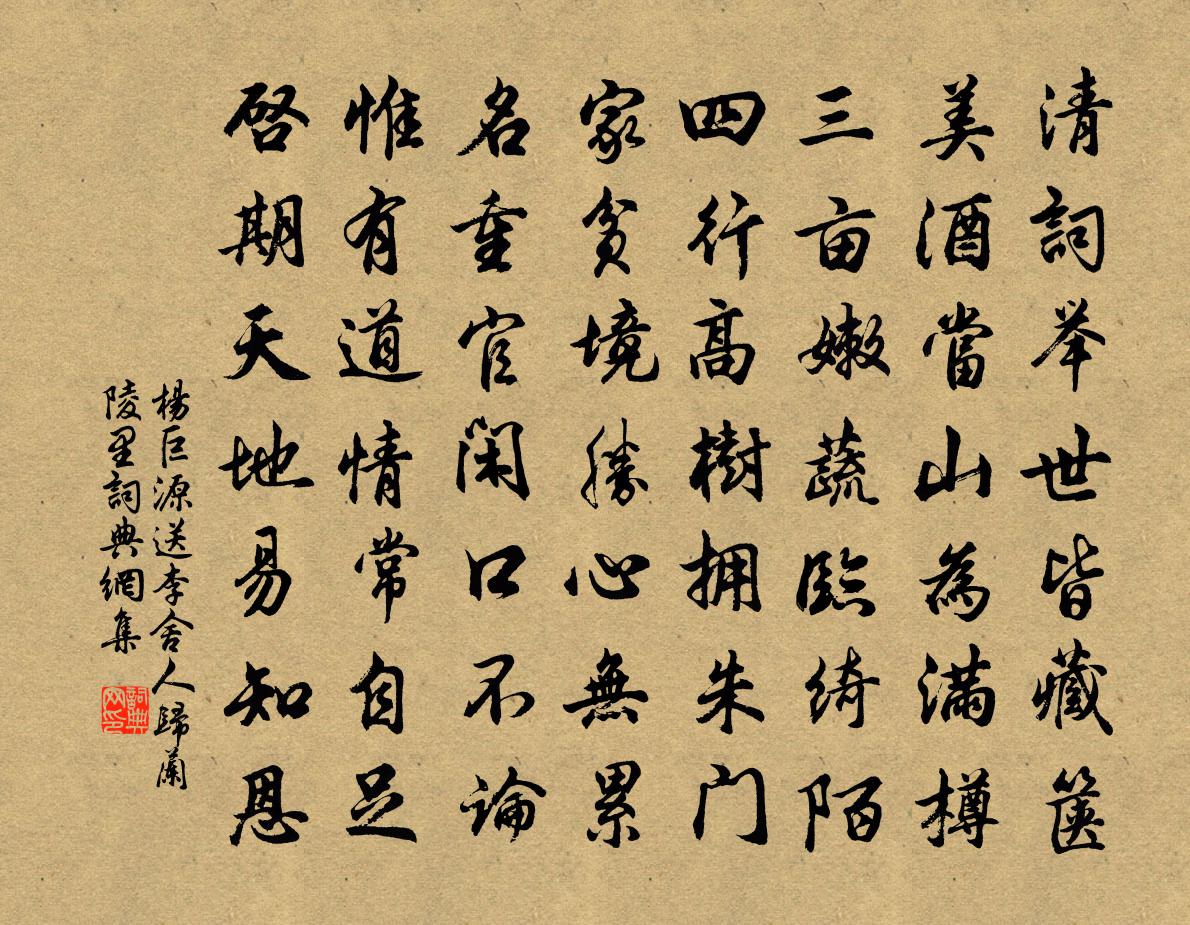 清詞举世皆藏箧
美酒當山為满樽
三亩嫩蔬臨绮陌
四行高樹拥朱门
家貧境勝心無累
名重官闲口不論
惟有道情常自足
啓期天地易知恩
楊巨源送李舍人歸蘭
陵里詞典網集
詞典网印